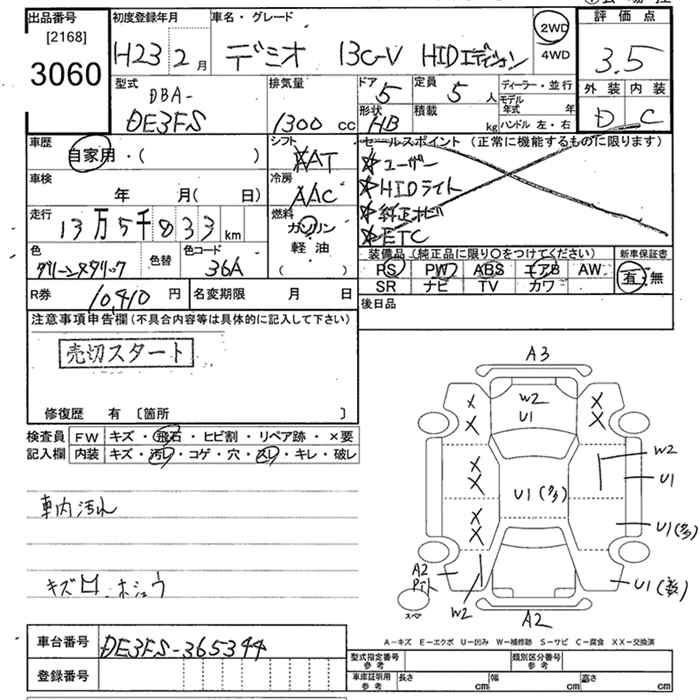 出品番号 初度登録年月 車名・グレード 評価点
[2168]
3060 H23 2月 デミオ 13C-V HIDエディション 2WD 4WD 3.5
型式 排気量 ドア 定員 ディーラー・並行 外装 内装
DBA- 5 5人 モデル年式 年 D C
DE3FS 1300cc 形状 HB 積載 kg ハンドル 左・右
車歴 シフト セールスポイント (正常に機能するものに限ります)
自家用・( ) AT ユーザー
車検 冷房 HIDライト
年 月( 日) AAC 純正ナビ
走行 燃料 ETC
13万5千833km ガソリン
軽・油
( )
色 色替 色コード 装備品(純正品に限り○をつけてください) 新車保証書
グリーンメタリック 36A PS PW ABS エアB AW 有・無
SR ナビ TV カワ
R券 10,410円 名変期限 月 日 後日品
注意事項申告欄(不具合内容等は具体的に記入して下さい)
売切スタート
修復歴 有 〔箇所 〕
検査員 FW キズ・飛石・ヒビ割・リペア跡・×要
記入欄 内装 キズ・汚れ・コゲ・穴・スレ・キレ・破レ
車内汚れ
キズ凹.ホシュウ
A3
W2
U1
X X
X X
X
X
X
X
W2
U1
U1(多)
U1(多)
A2
スペア
W2
U1(数)
A2
A-キズ E-エクボ U-凹み W-補修跡 S-サビ C-腐食 XX-交換済
車台番号 DE3FS-365344
登録番号
型式指定番号 参考 類別区分番号 参考
車庫証明用 参考 長さ cm 幅 cm 高さ cm